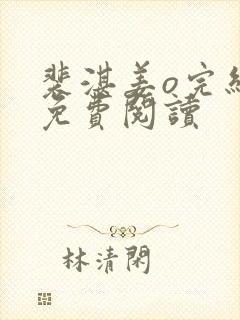 裴湛姜o完結
免費閱讀
林清閑